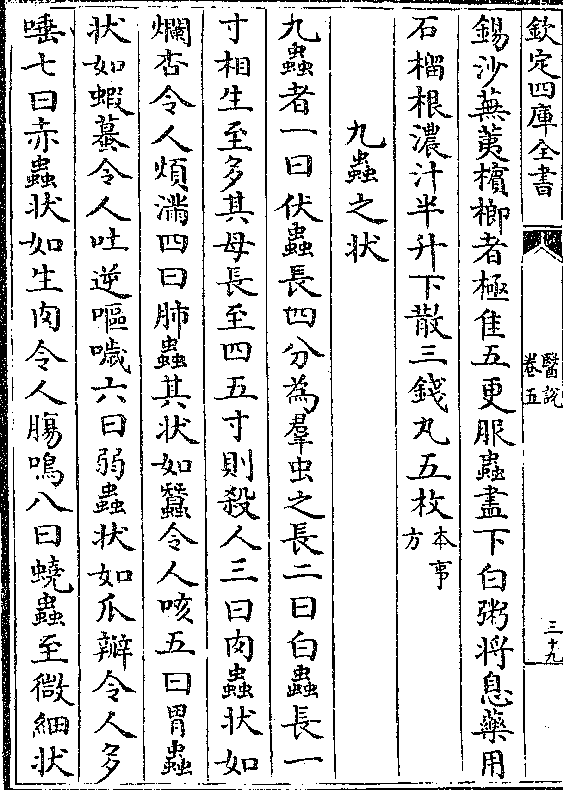 欽定四庫全書
醫說
卷五
三十九
錫沙蕪荑檳榔者極佳五更服蟲盡下白粥將息藥用
石榴根濃汁半升下散三錢丸五枚本事方
九蟲之狀
九蟲者一曰伏蟲長四分為羣虫之長二曰白蟲長一
寸相生至多其母長至四五寸則殺人三曰肉蟲状如
爛杏令人煩滿四曰肺蟲其状如蠶令人咳五曰胃蟲
状如蝦蟇令人吐逆嘔噦六曰弱蟲状如瓜瓣令人多
唾七曰赤蟲状如生肉令人腸鳴八曰蟯蟲至微細状